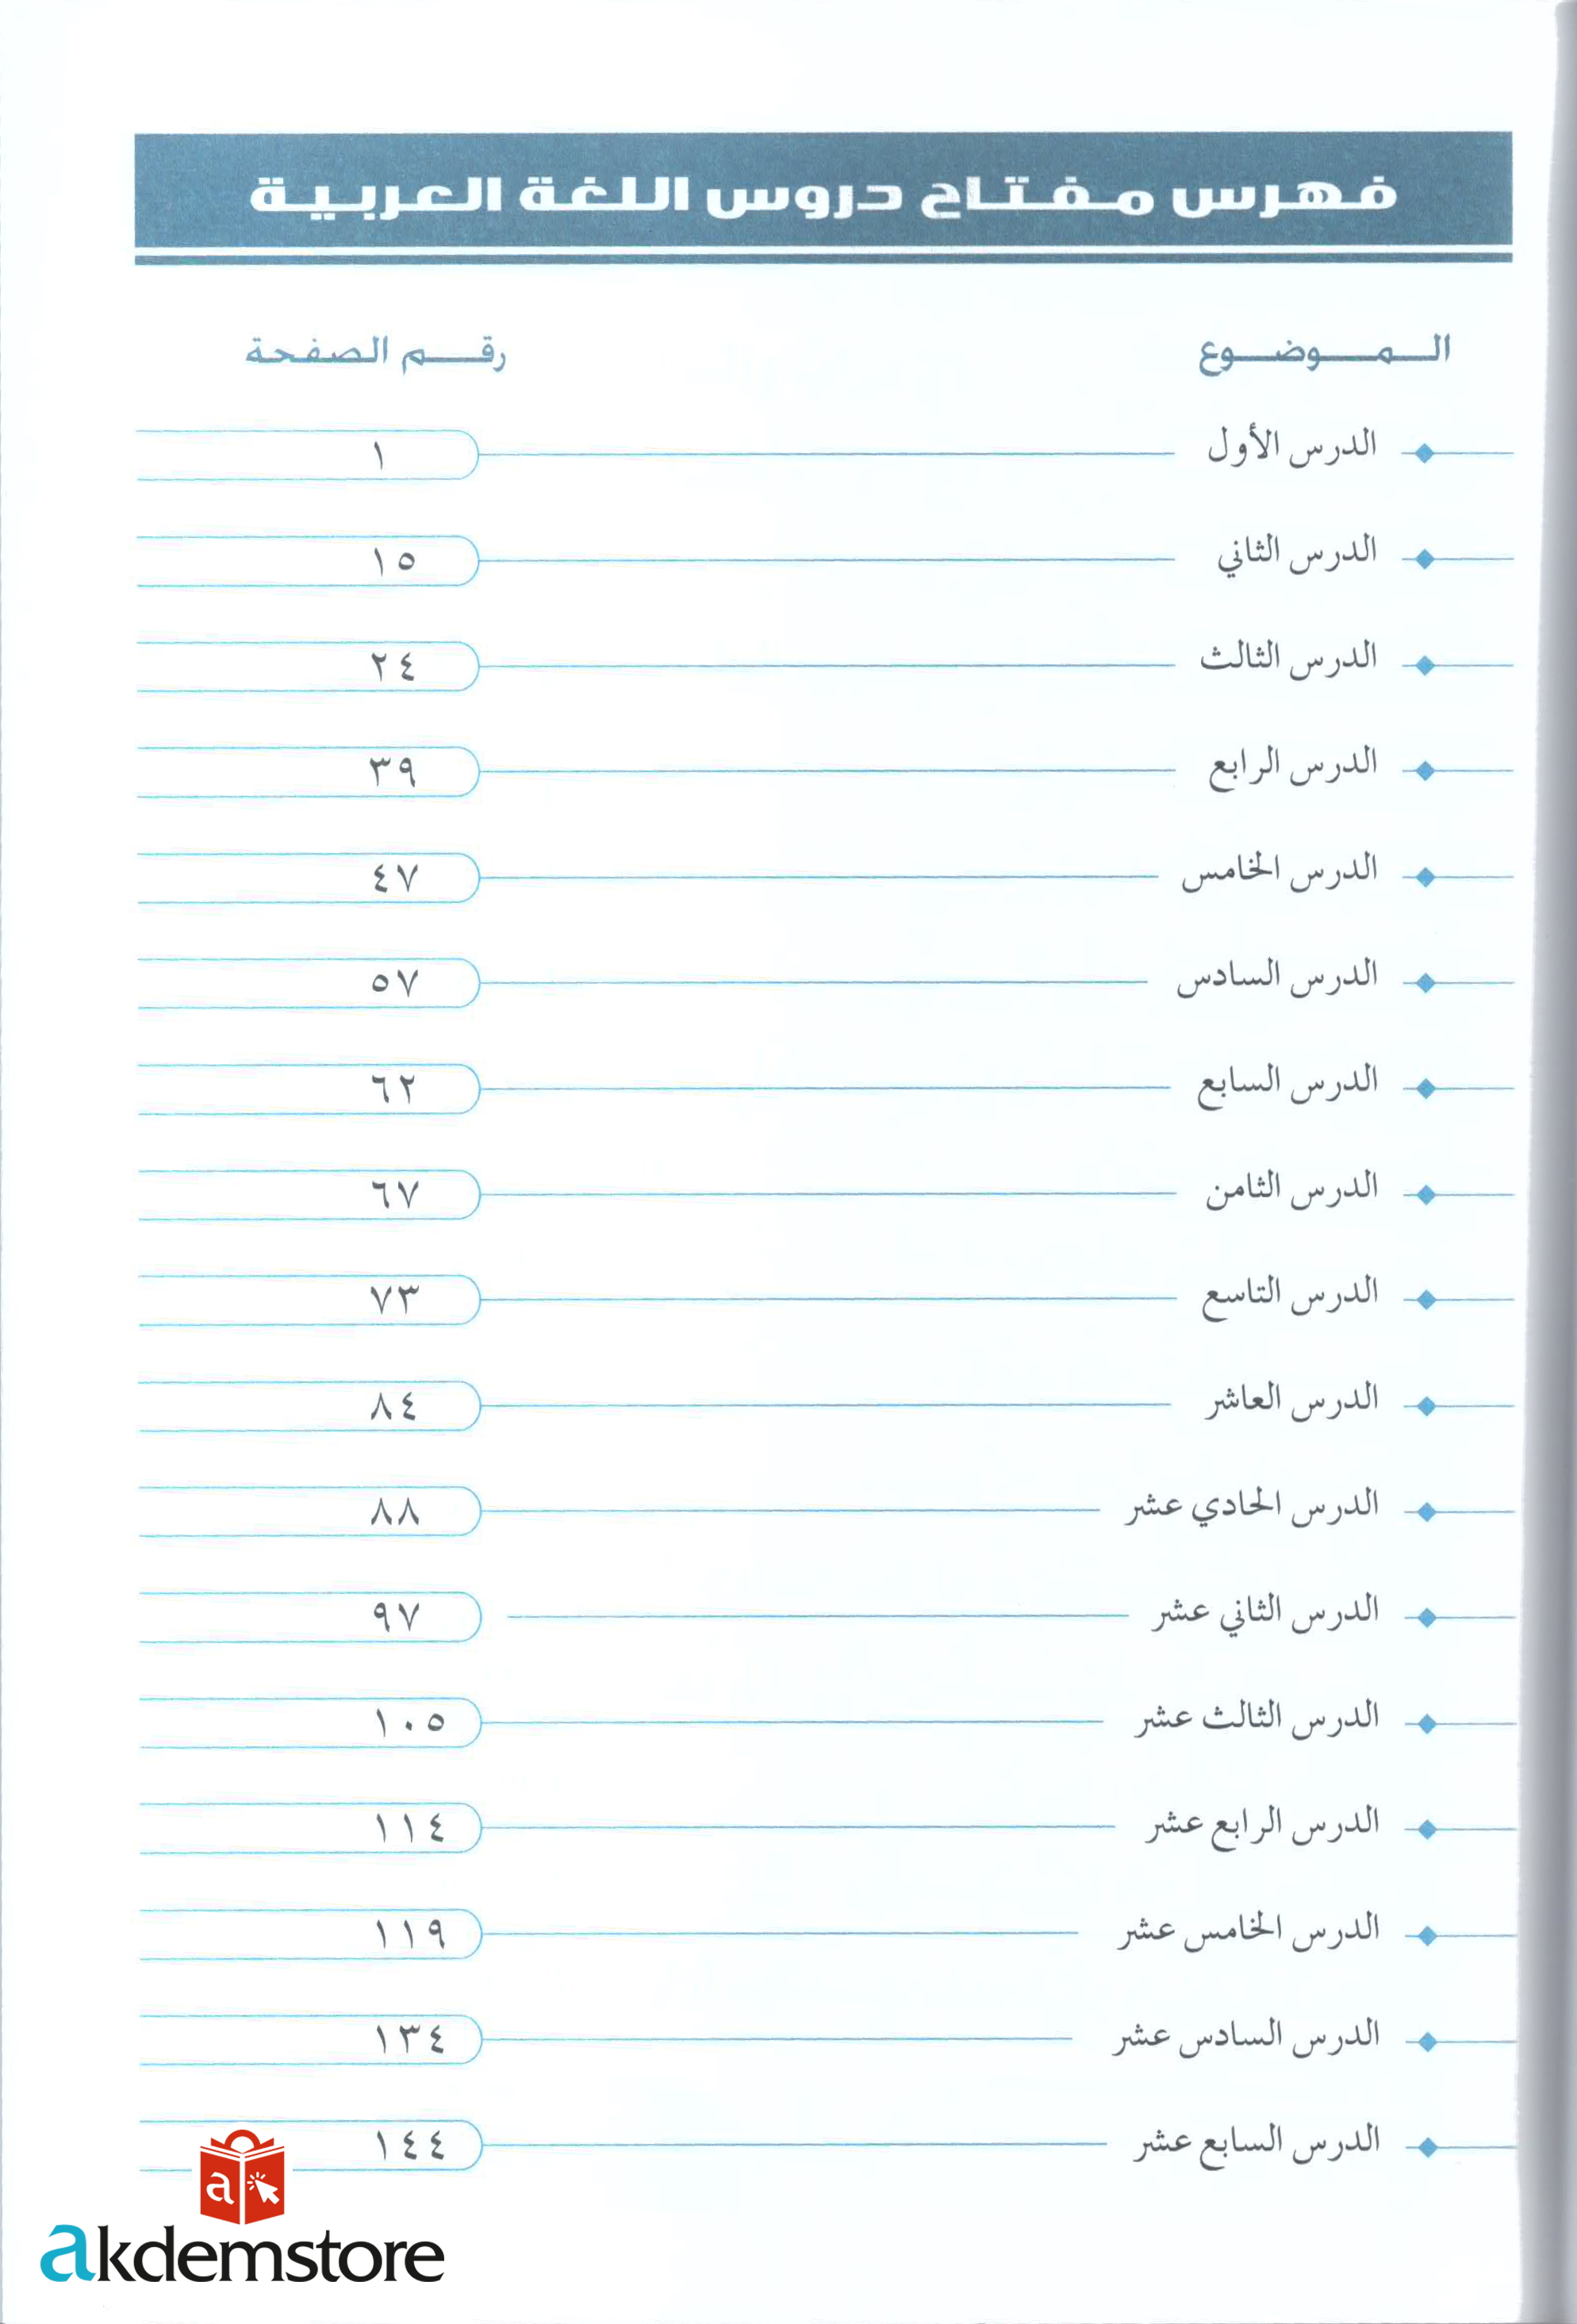 فهرس مفتاح دروس اللغة العربية
الموضوع رقم الصفحة
الدرس الأول ١
الدرس الثاني ١٥
الدرس الثالث ٢٤
الدرس الرابع ٣٩
الدرس الخامس ٤٧
الدرس السادس ٥٧
الدرس السابع ٦٢
الدرس الثامن ٦٧
الدرس التاسع ٧٣
الدرس العاشر ٨٤
الدرس الحادي عشر ٨٨
الدرس الثاني عشر ٩٧
الدرس الثالث عشر ١٠٥
الدرس الرابع عشر ١١٤
الدرس الخامس عشر ١١٩
الدرس السادس عشر ١٣٤
الدرس السابع عشر ١٤٤
a
akdemstore